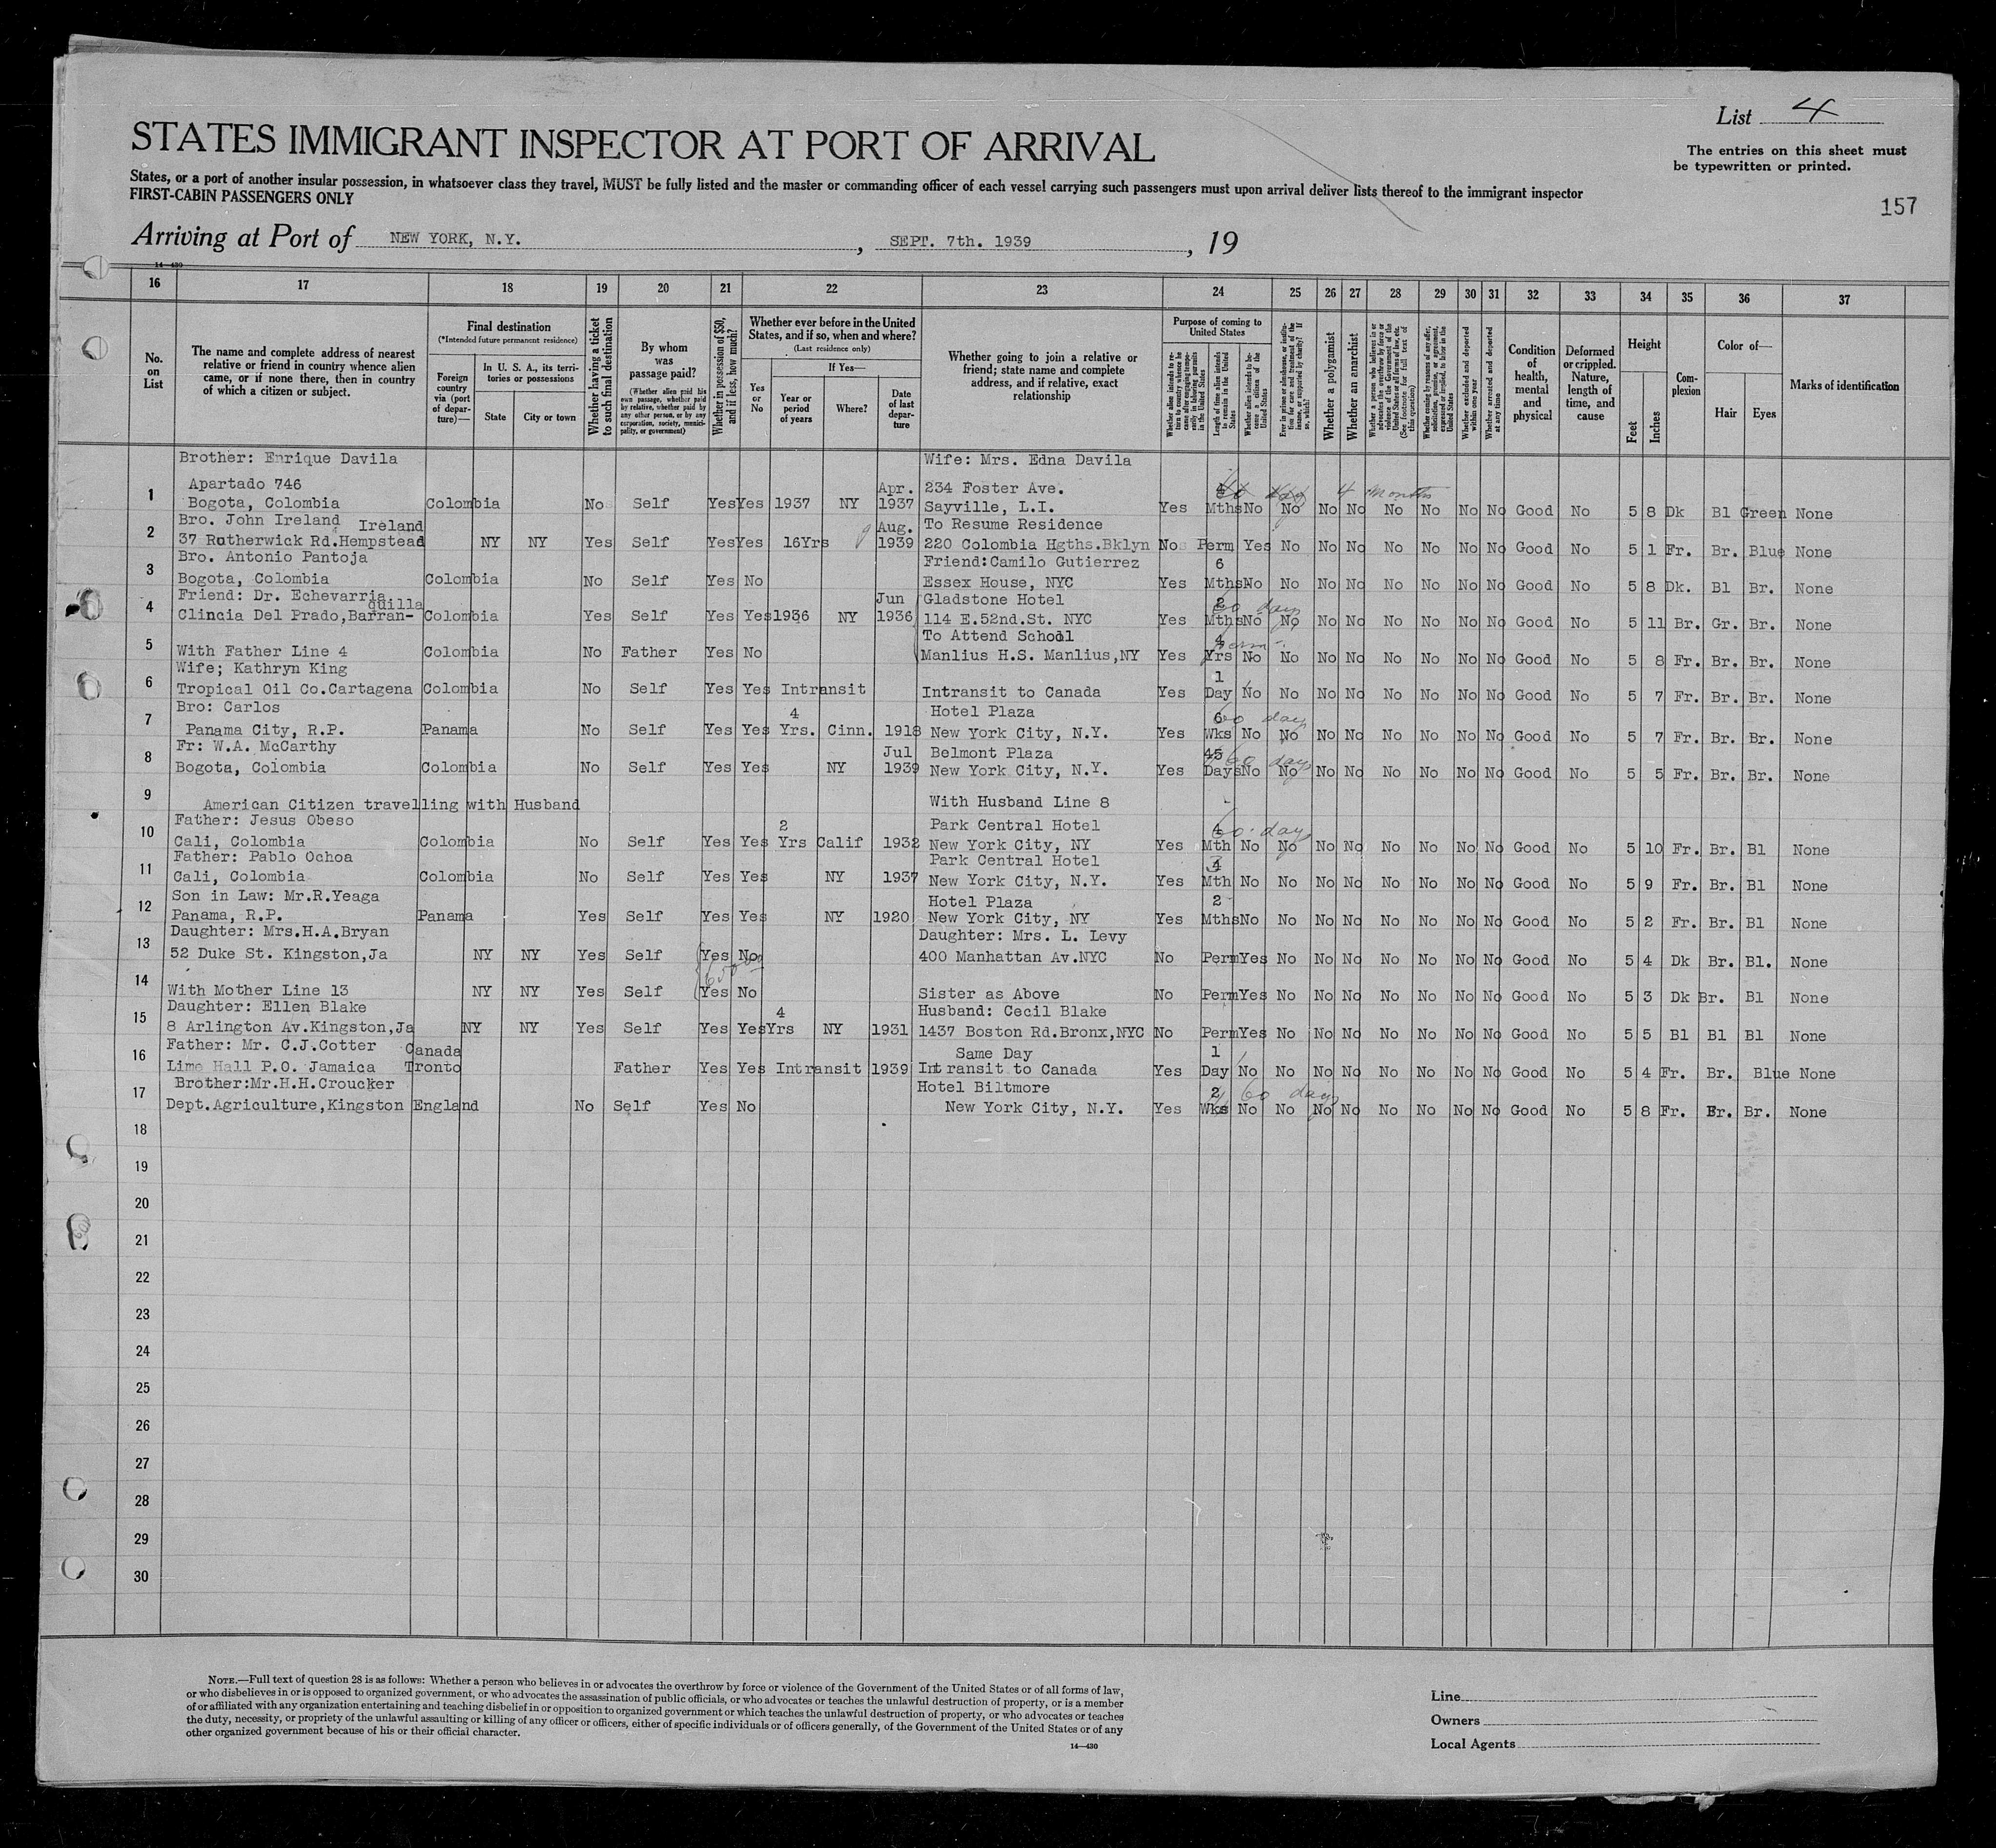 List 4
STATES IMMIGRANT INSPECTOR AT PORT OF ARRIVAL
The entries on this sheet must
be typewritten or printed.
States, or a port of another insular possession, in whatsoever class they travel, MUST be fully listed and the master or commanding officer of each vessel carrying such passengers must upon arrival deliver lists thereof to the immigrant inspector
FIRST-CABIN PASSENGERS ONLY
157
Arriving at Port of NEW YORK, N.Y. , SEPT. 7th. 1939 , 19
14—430
16 17 18 19 20 21 22 23 24 25 26 27 28 29 30 31 32 33 34 35 36 37
No. on List
The name and complete address of nearest relative or friend in country whence alien came, or if none there, then in country of which a citizen or subject.
Final destination
(*Intended future permanent residence)
Foreign country via (port of departure)—
In U. S. A., its territories or possessions
State
City or town
Whether having a ticket to such final destination
By whom was passage paid?
(Whether alien paid his own passage, whether paid by relative, whether paid by any other person, or by any corporation, society, municipality, or government)
Whether in possession of $50, and if less, how much?
Whether ever before in the United States, and if so, when and where?
(Last residence only)
Yes or No
If Yes—
Year or period of years
Where?
Date of last departure
Whether going to join a relative or friend; state name and complete address, and if relative, exact relationship
Purpose of coming to United States
Whether alien intends to return to country whence he came after engaging temporarily in laboring pursuits in the United States
Length of time alien intends to remain in the United States
Whether alien intends to become a citizen of the United States
Ever in prison or almshouse, or institution for care and treatment of the insane, or supported by charity? If so, which?
Whether a polygamist
Whether an anarchist
Whether a person who believes in or advocates the overthrow by force or violence of the Government of the United States or all forms of law, etc. (See footnote for full text of this question)
Whether coming by reasons of any offer, solicitation, promise, or agreement, expressed or implied, to labor in the United States
Whether excluded and deported within one year
Whether arrested and deported at any time
Condition of health, mental and physical
Deformed or crippled. Nature, length of time, and cause
Height
Feet
Inches
Complexion
Color of—
Hair
Eyes
Marks of identification
Brother: Enrique Davila Wife: Mrs. Edna Davila
Apartado 746 Apr. 234 Foster Ave. 4 months
1 Bogota, Colombia Colombia No Self Yes Yes 1937 NY 1937 Sayville, L.I. Yes Mths No No No No No No No No Good No 5 8 Dk Bl Green None
Bro. John Ireland Ireland Aug. To Resume Residence
2 37 Rutherwick Rd.Hempstead NY NY Yes Self Yes Yes 16Yrs 1939 220 Colombia Hgths.Bklyn No Perm Yes No No No No No No No Good No 5 1 Fr. Br. Blue None
Bro. Antonio Pantoja Friend:Camilo Gutierrez 6
3 Bogota, Colombia Colombia No Self Yes No Essex House, NYC Yes Mths No No No No No No No No Good No 5 8 Dk. Bl Br. None
Friend: Dr. Echevarria quilla Jun Gladstone Hotel 2 60 days
4 Clincia Del Prado,Barran- Colombia Yes Self Yes Yes 1936 NY 1936 114 E.52nd.St. NYC Yes Mths No No No No No No No No Good No 5 11 Br. Gr. Br. None
To Attend School 4
5 With Father Line 4 Colombia No Father Yes No Manlius H.S. Manlius,NY Yes Yrs No No No No No No No No Good No 5 8 Fr. Br. Br. None
Wife; Kathryn King 1
6 Tropical Oil Co.Cartagena Colombia No Self Yes Yes Intransit Intransit to Canada Yes Day No No No No No No No No Good No 5 7 Fr. Br. Br. None
Bro: Carlos 4 Hotel Plaza 6 60 days
7 Panama City, R.P. Panama No Self Yes Yes Yrs. Cinn. 1918 New York City, N.Y. Yes Wks No No No No No No No No Good No 5 7 Fr. Br. Br. None
Fr: W.A. McCarthy Jul Belmont Plaza 45 60 days
8 Bogota, Colombia Colombia No Self Yes Yes NY 1939 New York City, N.Y. Yes Days No No No No No No No No Good No 5 5 Fr. Br. Br. None
9 American Citizen travelling with Husband With Husband Line 8
Father: Jesus Obeso 2 Park Central Hotel 60 days
10 Cali, Colombia Colombia No Self Yes Yes Yrs Calif 1932 New York City, NY Yes Mth No No No No No No No No Good No 5 10 Fr. Br. Bl None
Father: Pablo Ochoa Park Central Hotel
11 Cali, Colombia Colombia No Self Yes Yes NY 1937 New York City, N.Y. Yes Mth No No No No No No No No Good No 5 9 Fr. Br. Bl None
Son in Law: Mr.R.Yeaga Hotel Plaza 2
12 Panama, R.P. Panama Yes Self Yes Yes NY 1920 New York City, NY Yes Mths No No No No No No No No Good No 5 2 Fr. Br. Bl None
Daughter: Mrs.H.A.Bryan Daughter: Mrs. L. Levy
13 52 Duke St. Kingston,Ja NY NY Yes Self Yes No 400 Manhattan Av.NYC No Perm Yes No No No No No No No Good No 5 4 Dk Br. Bl. None
14 With Mother Line 13 NY NY Yes Self Yes No Sister as Above No Perm Yes No No No No No No No Good No 5 3 Dk Br. Bl None
Daughter: Ellen Blake 4 Husband: Cecil Blake
15 8 Arlington Av.Kingston,Ja NY NY Yes Self Yes Yes Yrs NY 1931 1437 Boston Rd.Bronx,NYC No Perm Yes No No No No No No No Good No 5 5 Bl Bl Bl None
Father: Mr. C.J.Cotter Canada Same Day 1
16 Lime Hall P.O. Jamaica Tronto Father Yes Yes Intransit 1939 Intransit to Canada Yes Day No No No No No No No No Good No 5 4 Fr. Br. Blue None
Brother:Mr.H.H.Croucker Hotel Biltmore 2 60 days
17 Dept.Agriculture,Kingston England No Self Yes No New York City, N.Y. Yes Wks No No No No No No No No Good No 5 8 Fr. Br. Br. None
18
19
20
21
22
23
24
25
26
27
28
29
30
NOTE.—Full text of question 28 is as follows: Whether a person who believes in or advocates the overthrow by force or violence of the Government of the United States or of all forms of law,
or who disbelieves in or is opposed to organized government, or who advocates the assassination of public officials, or who advocates or teaches the unlawful destruction of property, or is a member
of or affiliated with any organization entertaining and teaching disbelief in or opposition to organized government or which teaches the unlawful destruction of property, or who advocates or teaches
the duty, necessity, or propriety of the unlawful assaulting or killing of any officer or officers, either of specific individuals or of officers generally, of the Government of the United States or of any
other organized government because of his or their official character.
14—430
Line
Owners
Local Agents